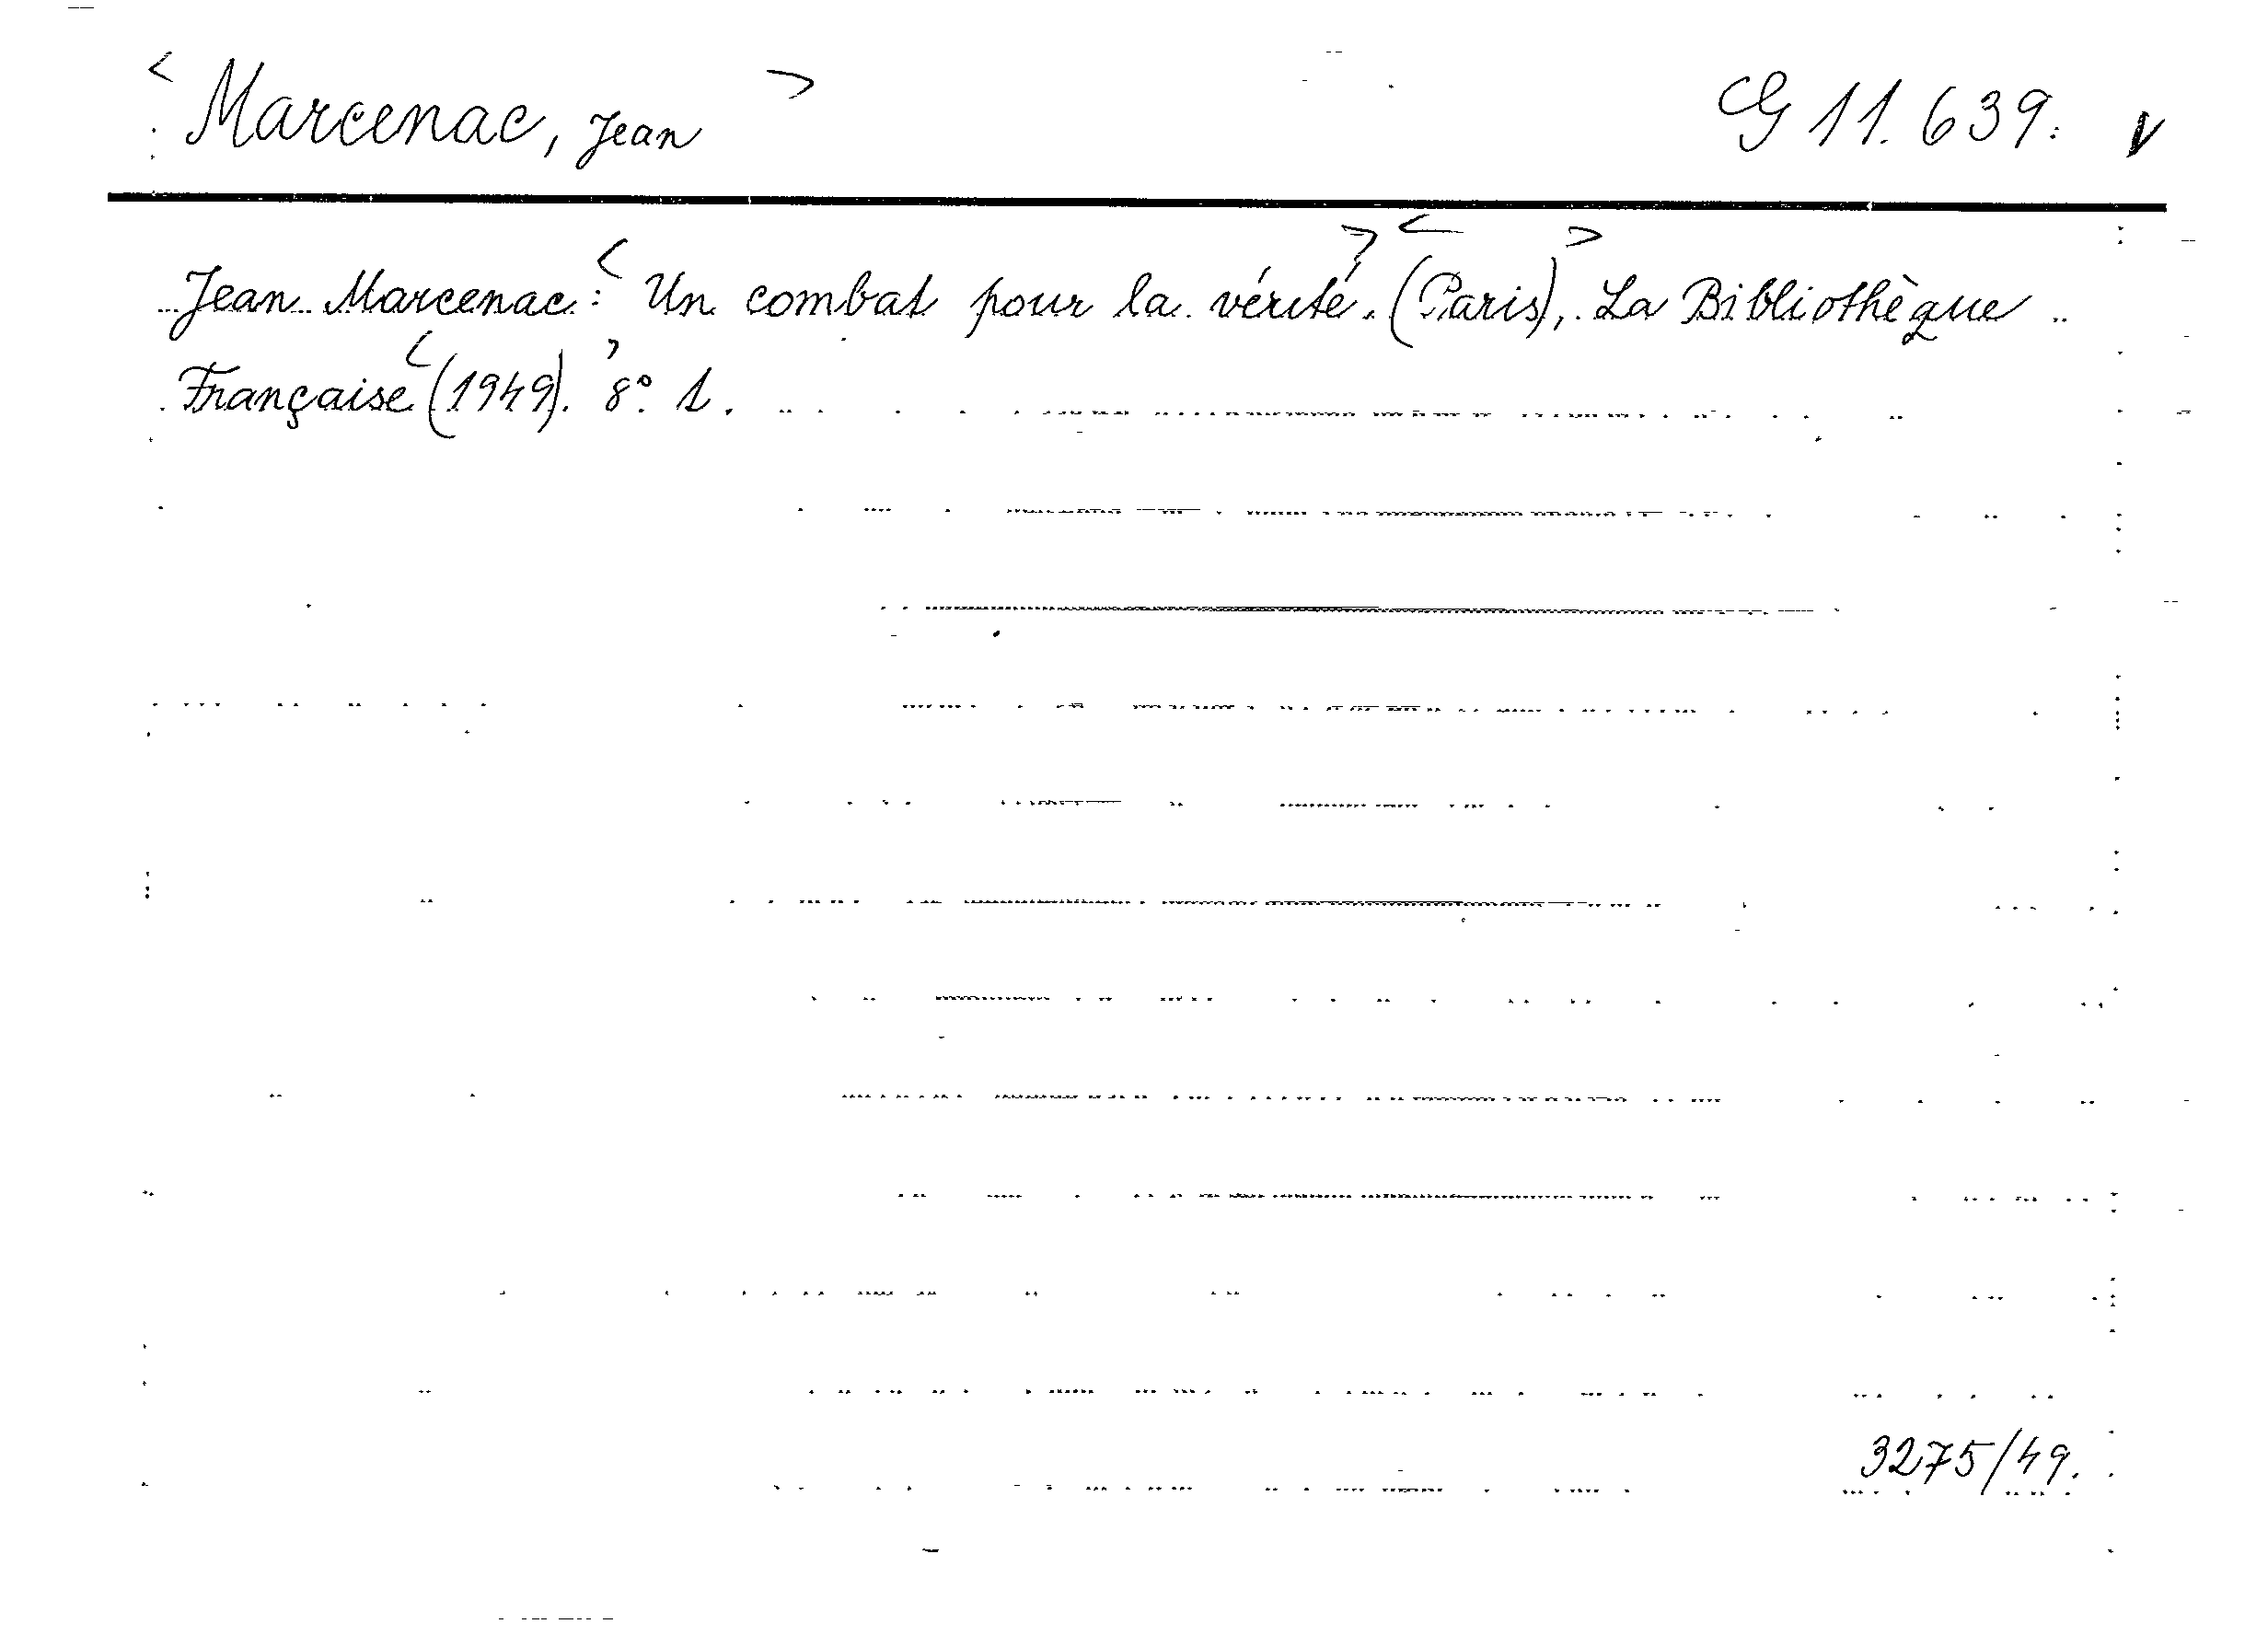 < Marcenac, Jean > G 11.639. v
Jean Marcenac: < Un combat pour la vérité. > < (Paris), > La Bibliothèque
Française < (1949). > 8° 1.
3275/49.